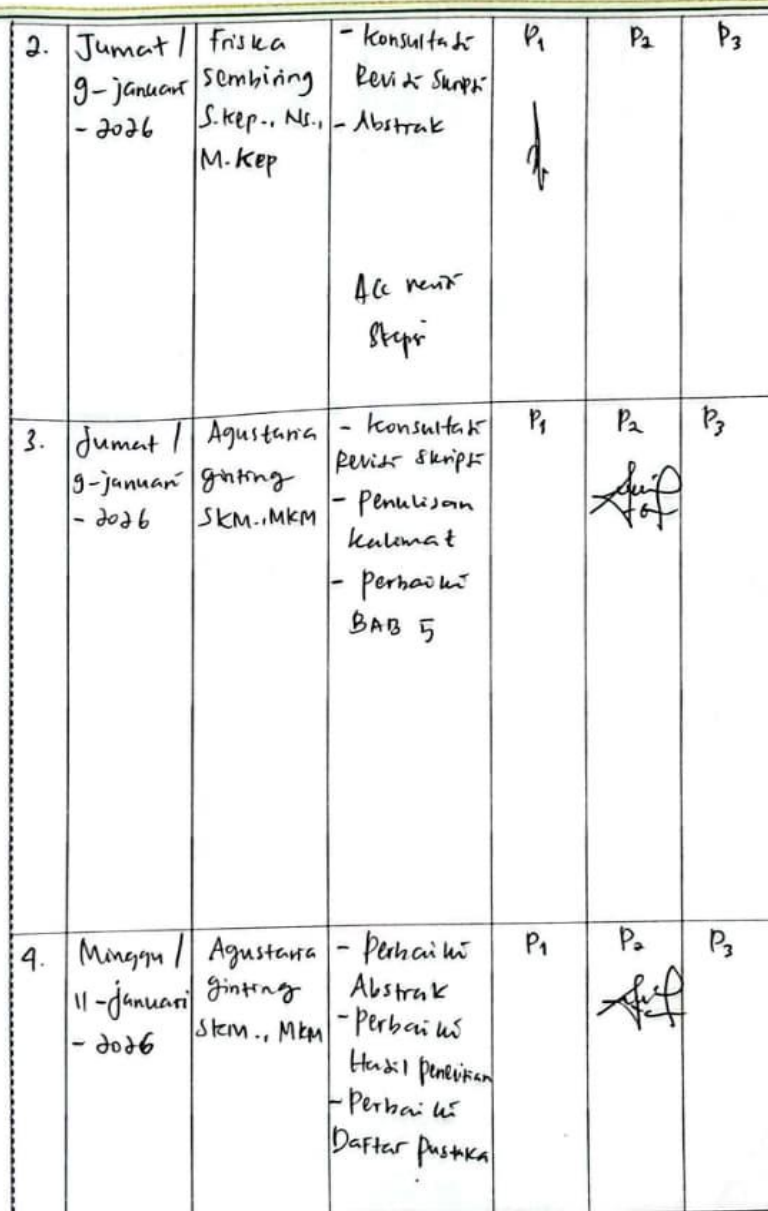 2.
Jumat /
9-januari
- 2026
Friska
Sembiring
S.Kep., Ns.,
M.Kep
- Konsultasi
Revisi Skripsi
- Abstrak
Acc revisi
Skripsi
P1
P2
P3
3.
Jumat /
9-januari
- 2026
Agustaria
ginting
SKM., MKM
- Konsultasi
Revisi Skripsi
- Penulisan
Kalimat
- Perbaiki
BAB 5
P1
P2
P3
4.
Minggu /
11-januari
- 2026
Agustaria
ginting
SKM., MKM
- Perbaiki
Abstrak
- Perbaiki
Hasil penelitian
- Perbaiki
Daftar pustaka
P1
P2
P3